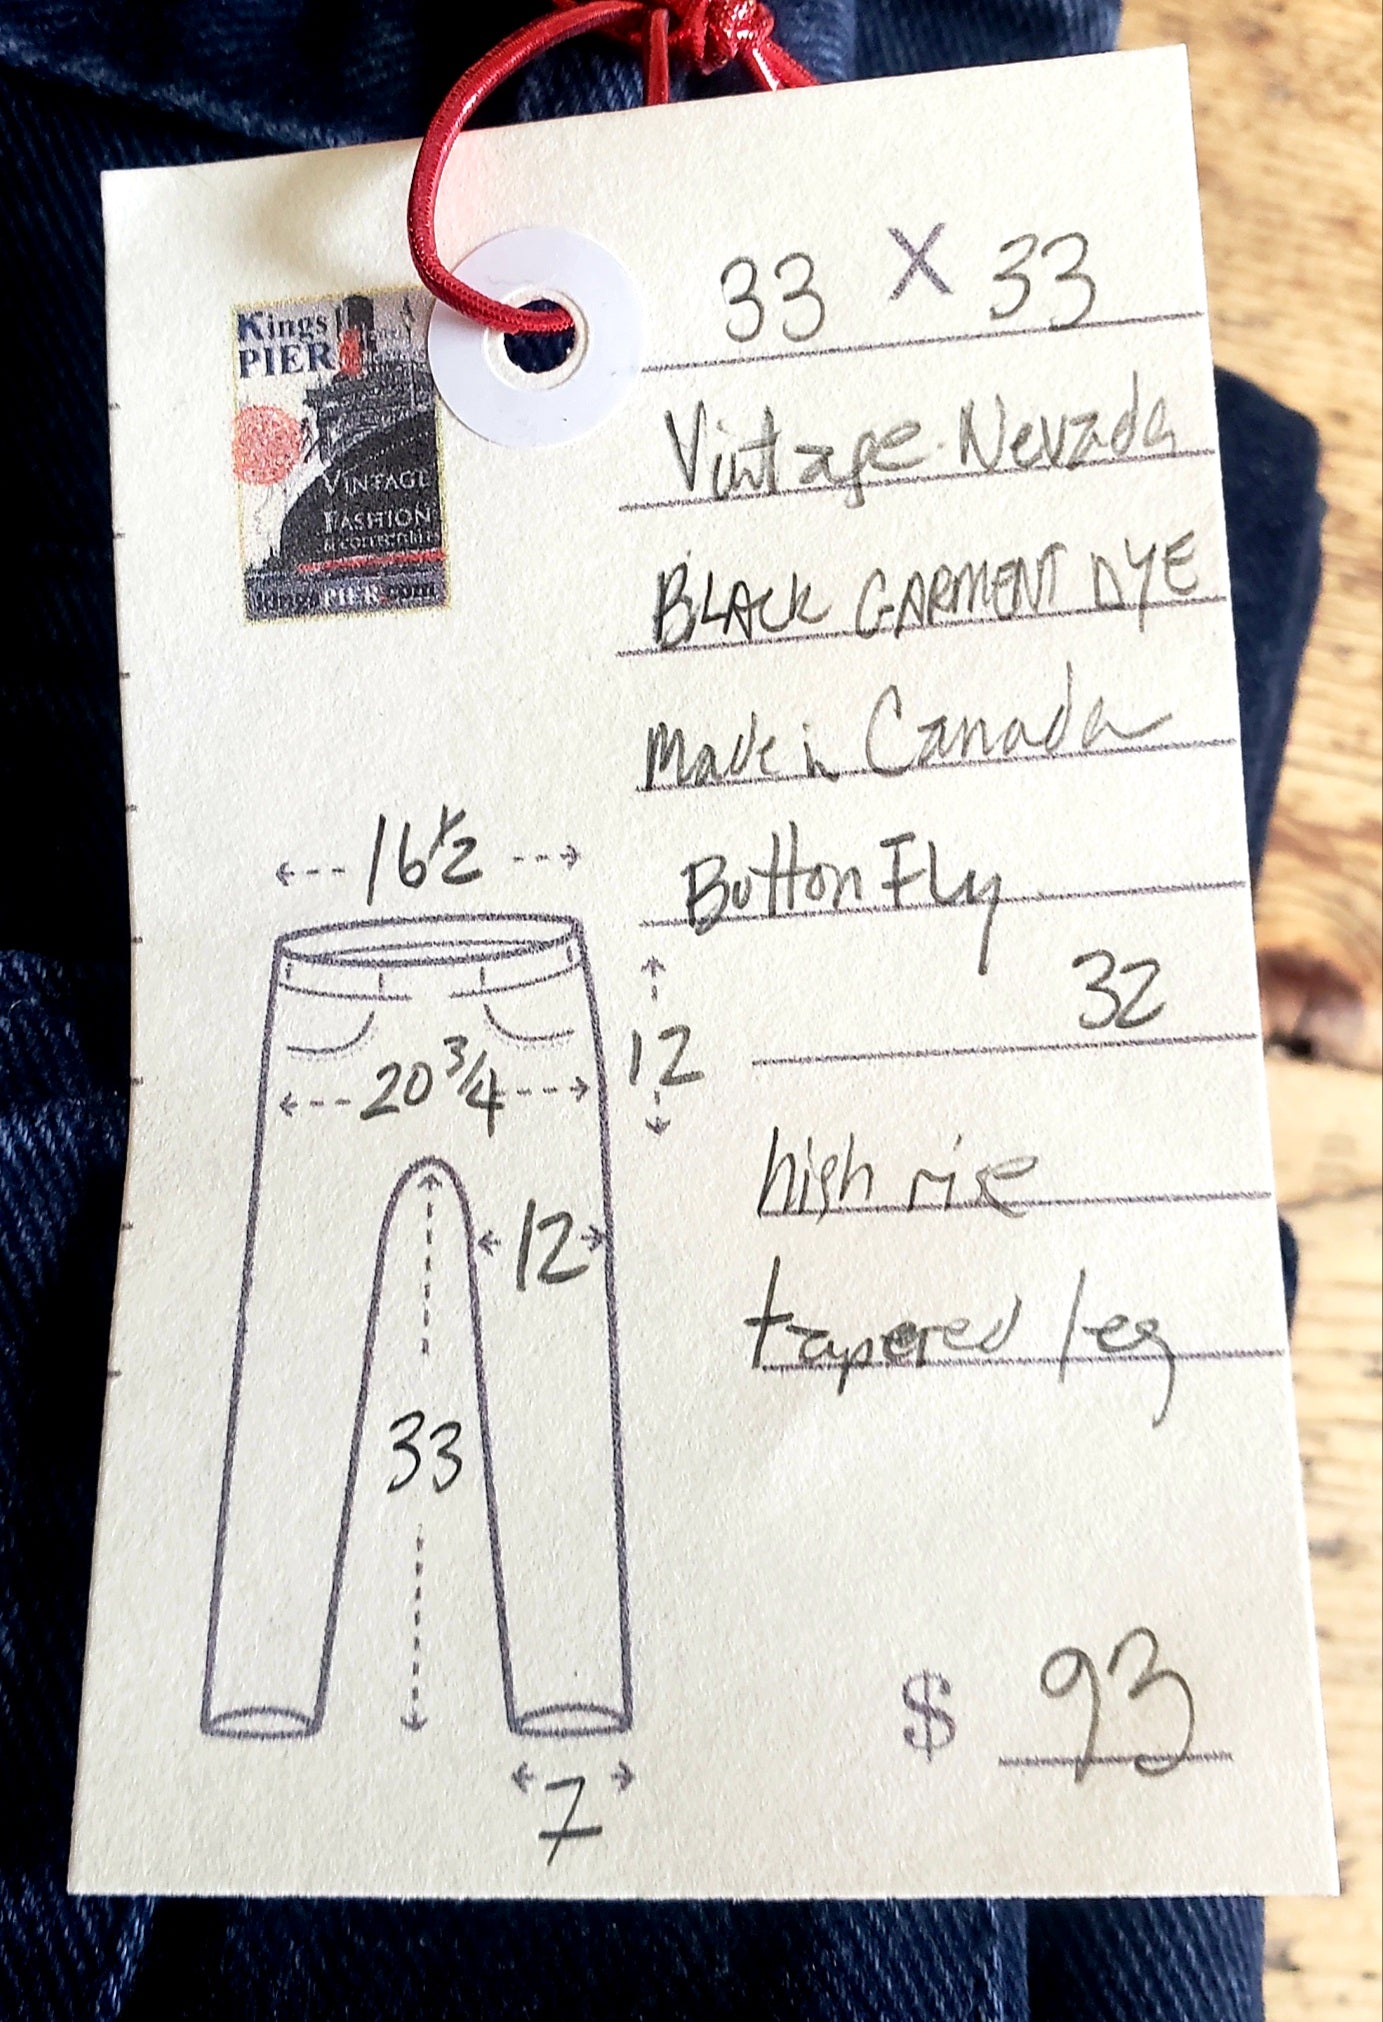 33 X 33
Kings
PIER
VINTAGE
FASHION
& COLLECTIBLES
PIER.com
Vintage Nevada
BLACK GARMENT DYE
Made in Canada
Button Fly
32
high rise
tapered leg
16 1/2
20 3/4
12
12
33
7
$ 93